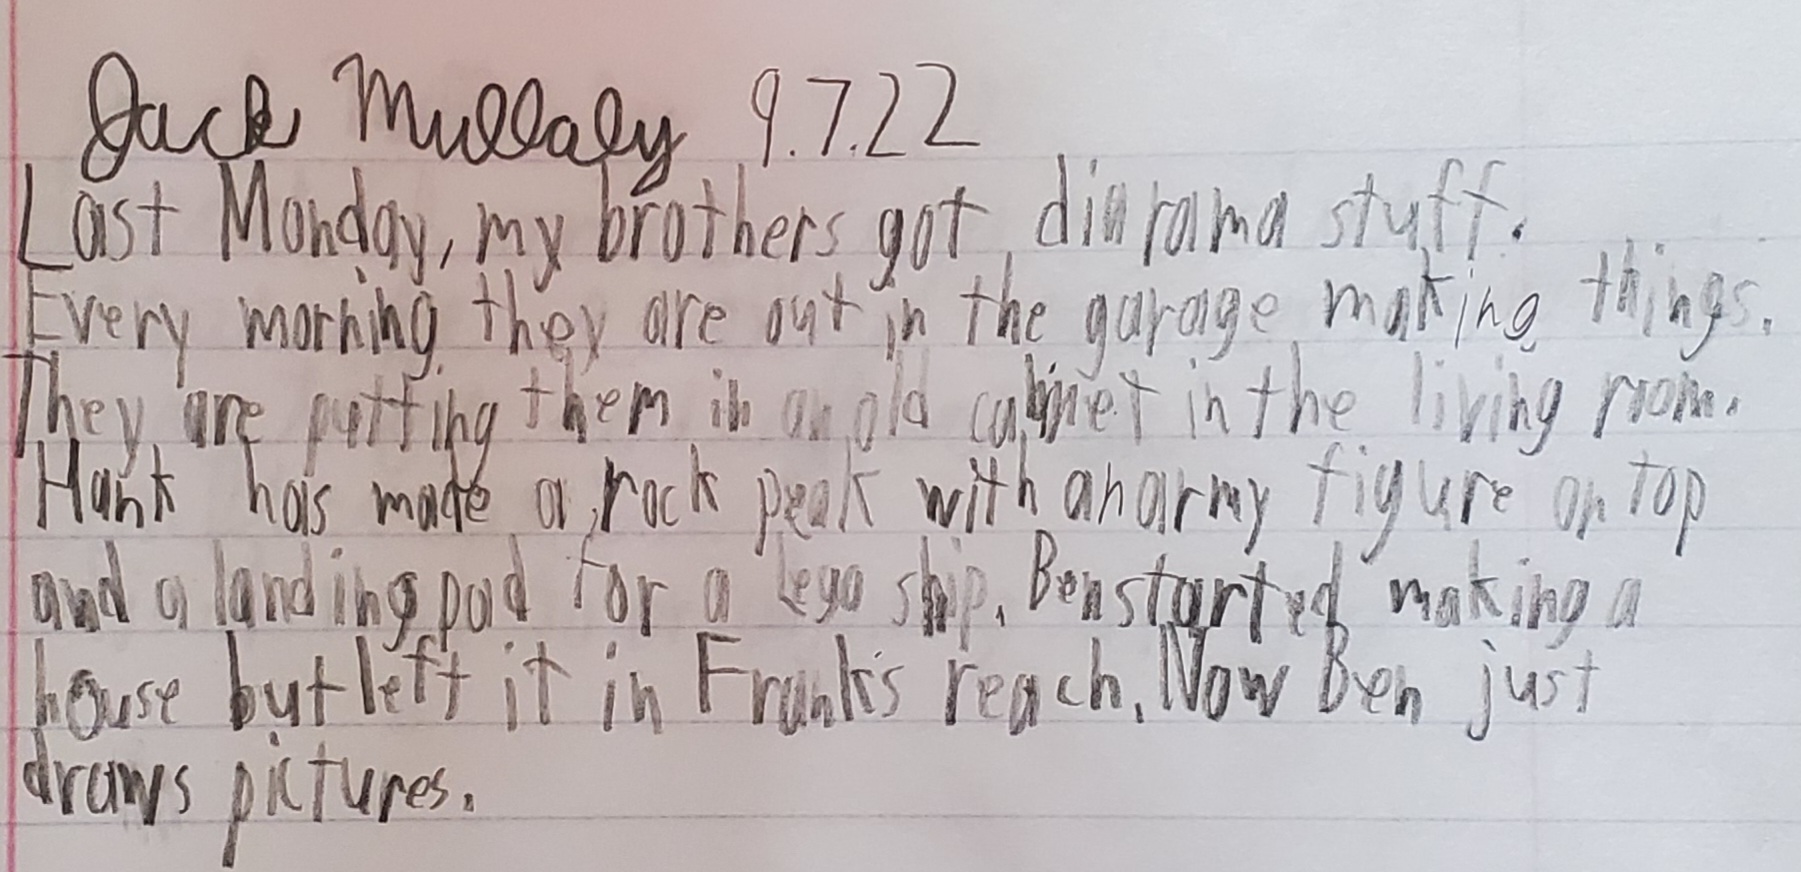 Jack Mullaly 9.7.22
Last Monday, my brothers got diarama stuff.
Every morning they are out in the garage making things.
They are putting them in an old cabinet in the living room.
Hank has made a rock peak with an army figure on top
and a landing pad for a Lego ship. Ben started making a
house but left it in Frank's reach. Now Ben just
draws pictures.